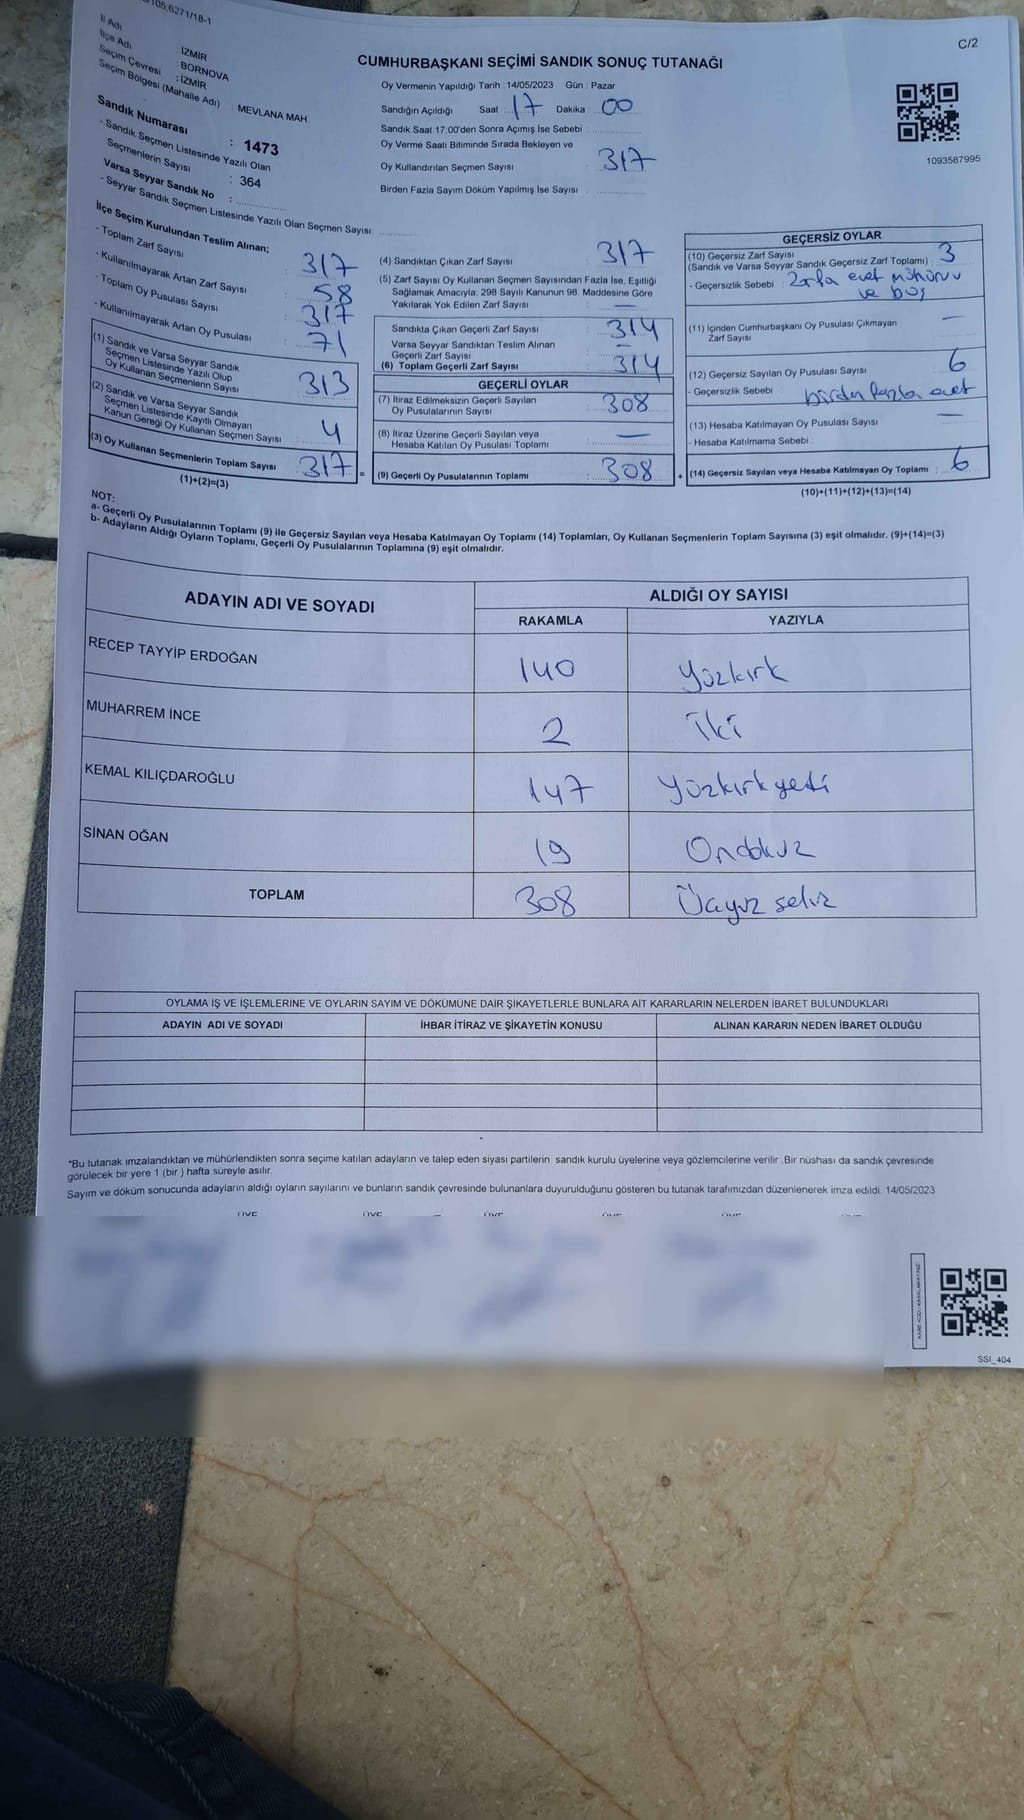 105.6271/18-1
C/2
İl Adı : İZMİR
İlçe Adı : BORNOVA
Seçim Çevresi : İZMİR
Seçim Bölgesi (Mahalle Adı) : MEVLANA MAH.
Sandık Numarası : 1473
- Sandık Seçmen Listesinde Yazılı Olan
Seçmenlerin Sayısı : 364
Varsa Seyyar Sandık No :
- Seyyar Sandık Seçmen Listesinde Yazılı Olan Seçmen Sayısı:
CUMHURBAŞKANI SEÇİMİ SANDIK SONUÇ TUTANAĞI
Oy Vermenin Yapıldığı Tarih : 14/05/2023 Gün : Pazar
Sandığın Açıldığı Saat : 17 Dakika : 00
Sandık Saat 17:00'den Sonra Açımış İse Sebebi :
Oy Verme Saati Bitiminde Sırada Bekleyen ve
Oy Kullandırılan Seçmen Sayısı : 317
Birden Fazla Sayım Döküm Yapılmış İse Sayısı :
1093587995
İlçe Seçim Kurulundan Teslim Alınan;
- Toplam Zarf Sayısı : 317
- Kullanılmayarak Artan Zarf Sayısı : 58
- Toplam Oy Pusulası Sayısı : 317
- Kullanılmayarak Artan Oy Pusulası : 71
(1) Sandık ve Varsa Seyyar Sandık
Seçmen Listesinde Yazılı Olup
Oy Kullanan Seçmenlerin Sayısı : 313
(2) Sandık ve Varsa Seyyar Sandık
Seçmen Listesinde Kayıtlı Olmayan
Kanun Gereği Oy Kullanan Seçmen Sayısı : 4
(3) Oy Kullanan Seçmenlerin Toplam Sayısı : 317 =
(1)+(2)=(3)
(4) Sandıktan Çıkan Zarf Sayısı : 317
(5) Zarf Sayısı Oy Kullanan Seçmen Sayısından Fazla İse, Eşitliği
Sağlamak Amacıyla, 298 Sayılı Kanunun 98. Maddesine Göre
Yakılarak Yok Edilen Zarf Sayısı : —
Sandıkta Çıkan Geçerli Zarf Sayısı : 314
Varsa Seyyar Sandıktan Teslim Alınan
Geçerli Zarf Sayısı : —
(6) Toplam Geçerli Zarf Sayısı : 314
GEÇERLİ OYLAR
(7) İtiraz Edilmeksizin Geçerli Sayılan
Oy Pusulalarının Sayısı : 308
(8) İtiraz Üzerine Geçerli Sayılan veya
Hesaba Katılan Oy Pusulası Toplamı : —
(9) Geçerli Oy Pusulalarının Toplamı : 308 +
GEÇERSİZ OYLAR
(10) Geçersiz Zarf Sayısı
(Sandık ve Varsa Seyyar Sandık Geçersiz Zarf Toplamı) : 3
- Geçersizlik Sebebi : Zarfa evet mühürü
ve boş
(11) İçinden Cumhurbaşkanı Oy Pusulası Çıkmayan
Zarf Sayısı : —
(12) Geçersiz Sayılan Oy Pusulası Sayısı : 6
- Geçersizlik Sebebi : birden fazla evet
(13) Hesaba Katılmayan Oy Pusulası Sayısı : —
- Hesaba Katılmama Sebebi :
(14) Geçersiz Sayılan veya Hesaba Katılmayan Oy Toplamı : 6
(10)+(11)+(12)+(13)=(14)
NOT:
a- Geçerli Oy Pusulalarının Toplamı (9) ile Geçersiz Sayılan veya Hesaba Katılmayan Oy Toplamı (14) Toplamları, Oy Kullanan Seçmenlerin Toplam Sayısına (3) eşit olmalıdır. (9)+(14)=(3)
b- Adayların Aldığı Oyların Toplamı, Geçerli Oy Pusulalarının Toplamına (9) eşit olmalıdır.
ADAYIN ADI VE SOYADI
ALDIĞI OY SAYISI
RAKAMLA YAZIYLA
RECEP TAYYİP ERDOĞAN 140 Yüzkırk
MUHARREM İNCE 2 İki
KEMAL KILIÇDAROĞLU 147 Yüzkırkyedi
SİNAN OĞAN 19 Ondokuz
TOPLAM 308 Üçyüz sekiz
OYLAMA İŞ VE İŞLEMLERİNE VE OYLARIN SAYIM VE DÖKÜMÜNE DAİR ŞİKAYETLERLE BUNLARA AİT KARARLARIN NELERDEN İBARET BULUNDUKLARI
ADAYIN ADI VE SOYADI İHBAR İTİRAZ VE ŞİKAYETİN KONUSU ALINAN KARARIN NEDEN İBARET OLDUĞU
*Bu tutanak imzalandıktan ve mühürlendikten sonra seçime katılan adayların ve talep eden siyası partilerin sandık kurulu üyelerine veya gözlemcilerine verilir. Bir nüshası da sandık çevresinde
görülecek bir yere 1 (bir) hafta süreyle asılır.
Sayım ve döküm sonucunda adayların aldığı oyların sayılarını ve bunların sandık çevresinde bulunanlara duyurulduğunu gösteren bu tutanak tarafımızdan düzenlenerek imza edildi. 14/05/2023
ÜYE ÜYE ÜYE ÜYE ÜYE ÜYE
SSI_404